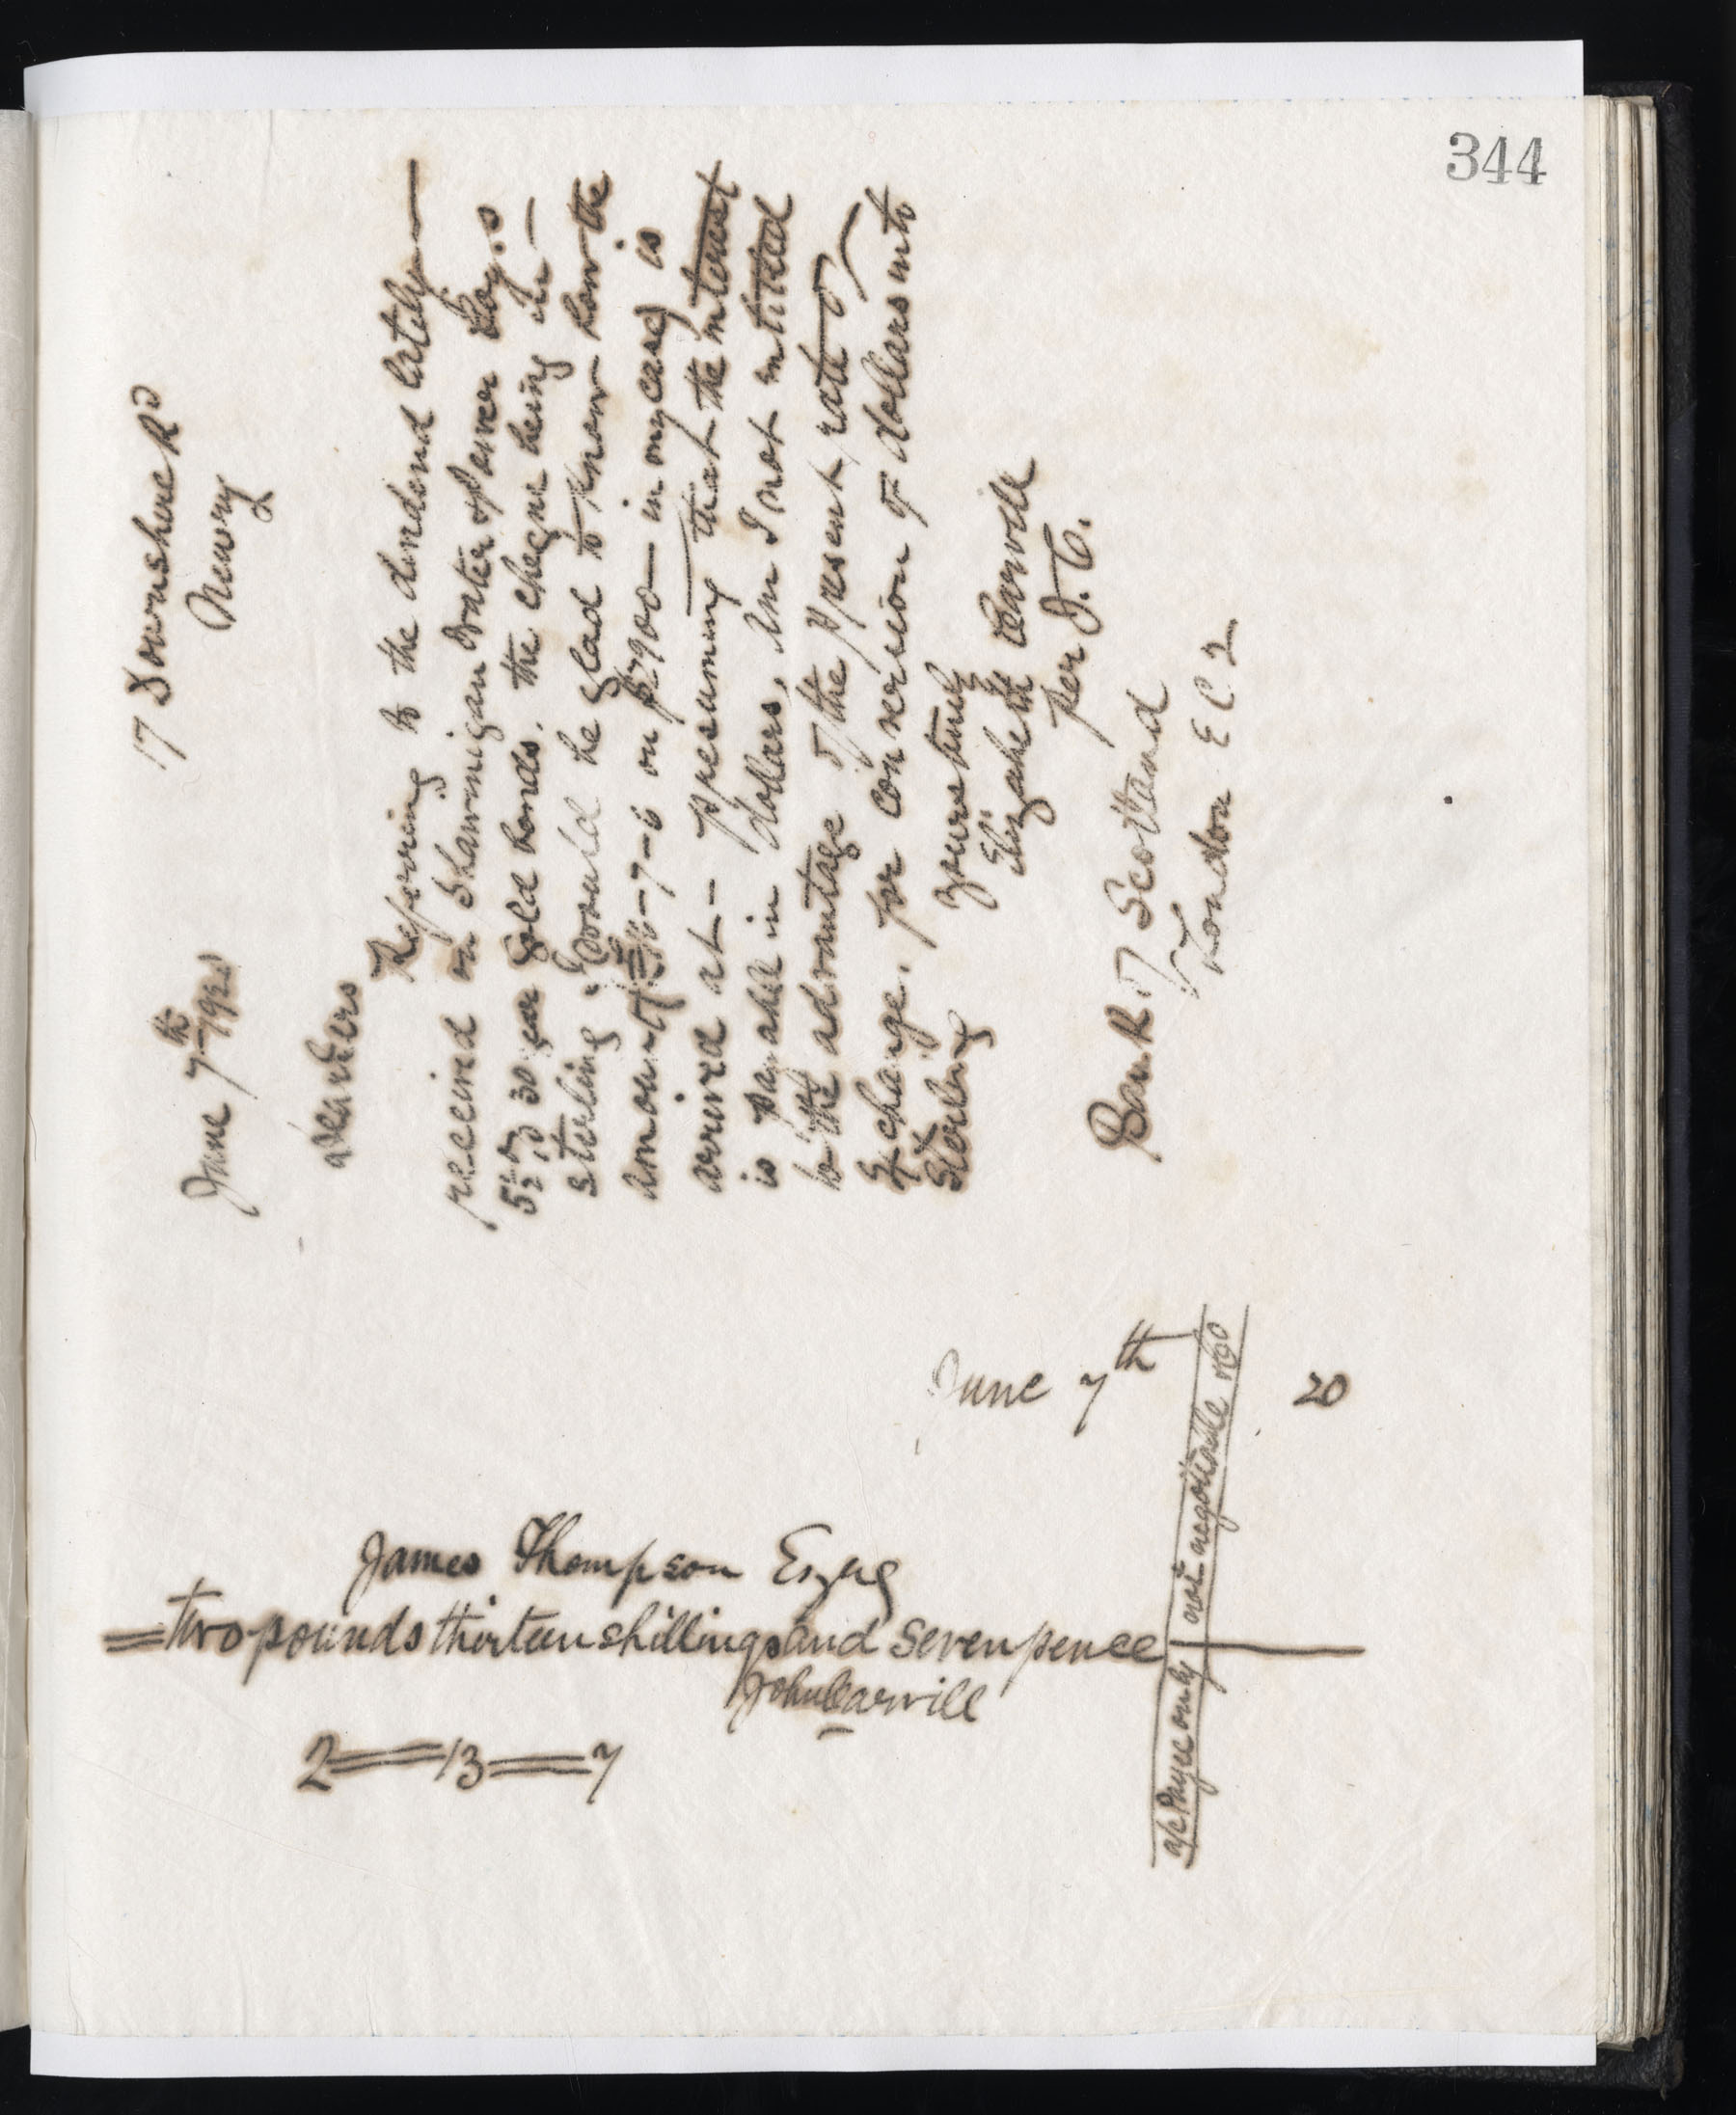 344
17 Downshire Rd
Newry
June 7th 1920
Dear Sirs
Referring to the dividend lately
received on Shawinigan Water & Power Coy.s
5½% 30 year gold bonds, the cheque being in
sterling, I would be glad to know how the
amount £16-7-6 on $2900 in my case) is
arrived at - presuming that the interest
is payable in dollars, am I not entitled
to the advantage of the present rate of
Exchange, for conversion of dollars into
Sterling
yours truly
Elizabeth Carvill
per J.C.
Bank of Scotland
London E C 2
June 7th 20
James Thompson Esq
two pounds thirteen shillings and seven pence
John Carvill
2 = 13 = 7
a/c Payee only not negotiable & Co